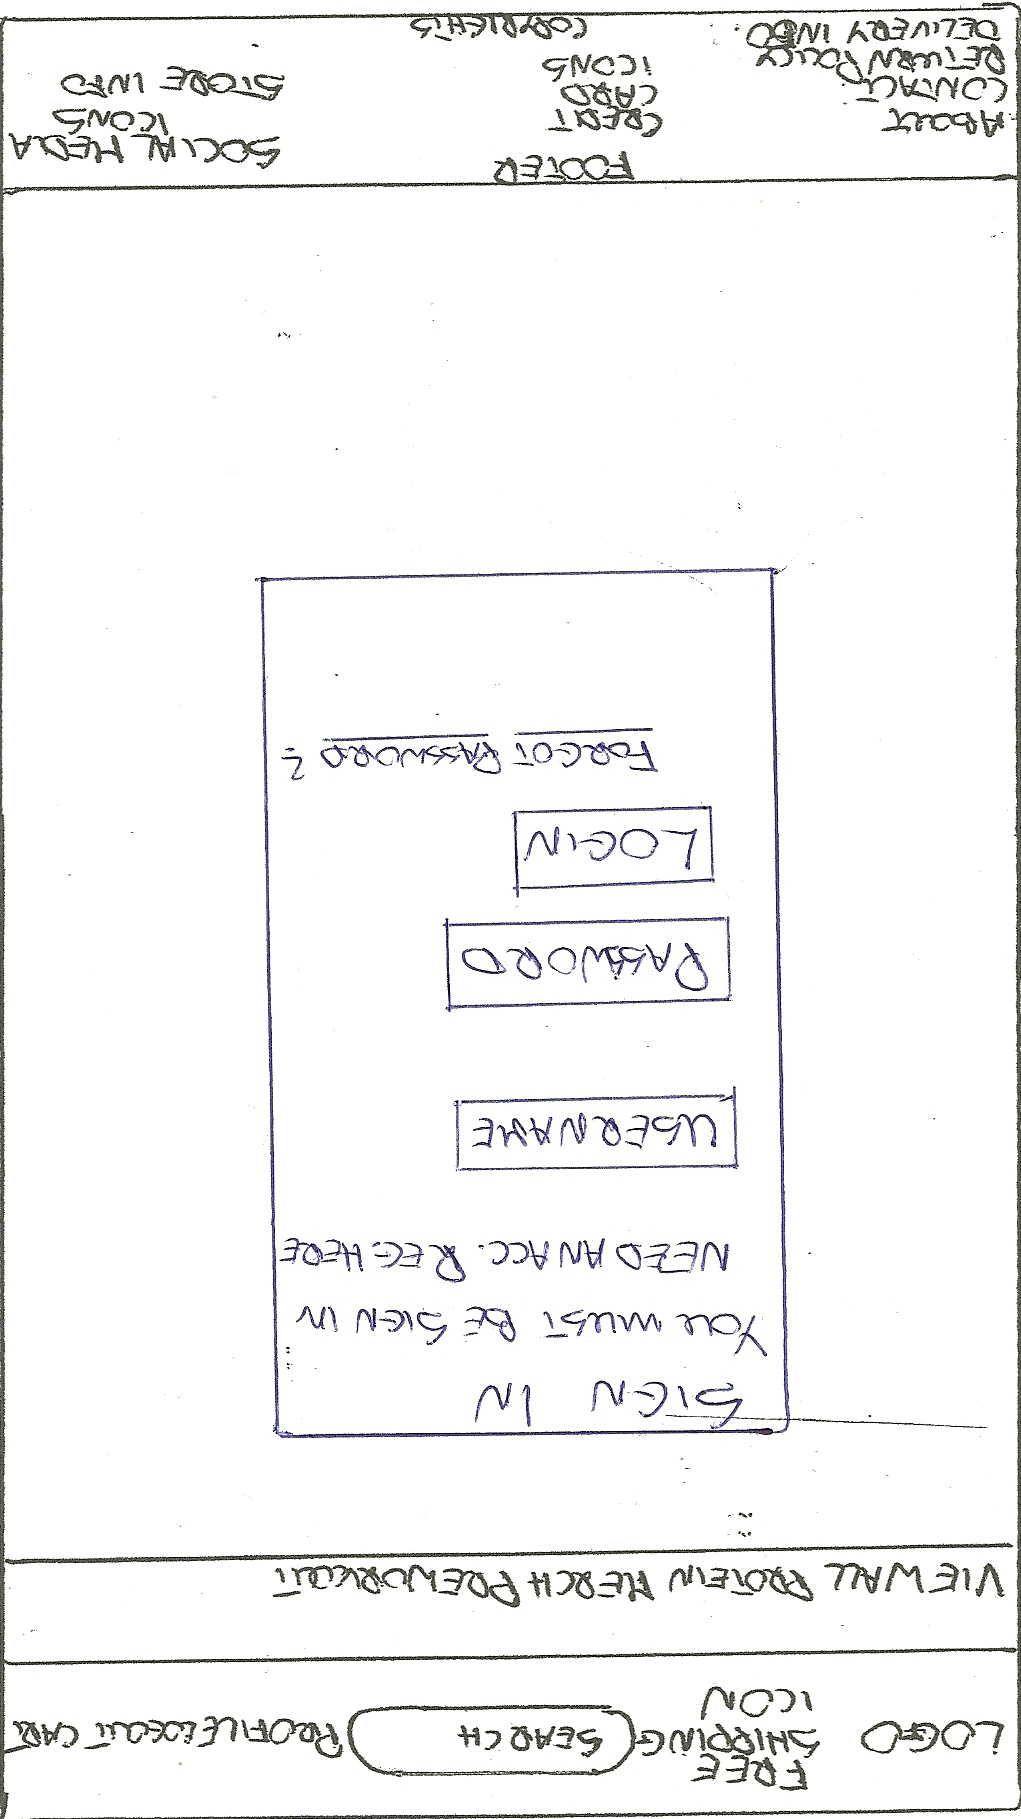 LOGO FREE SHIPPING ICON SEARCH PROFILE LOGOUT CART
VIEW ALL PROTEIN MERCH PREWORKOUT
SIGN IN
YOU MUST BE SIGN IN
NEED AN ACC. REG HERE
USERNAME
PASSWORD
LOGIN
FORGOT PASSWORD?
FOOTER
ABOUT
CONTACT
RETURN POLICY
DELIVERY INFO.
CREDIT
CARD
ICONS
COPYRIGHTS
SOCIAL MEDIA
ICONS
STORE INFO